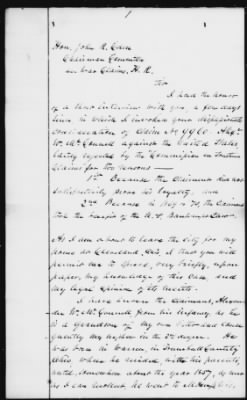 1
Hon. John R. Eden
Chairman Committee
on War Claims, H. R.
Sir
I had the honor
of a short interview with you a few days
since in which I invoked your dispassionate
consideration of Claim No 9960. Alexr
W. McConnell against the United States
lately rejected by the Commission on Southern
Claims for two reasons
1st Because the Claimant did not
satisfactorily prove his loyalty, and
2nd Because in
the benefit of the U.S. Bankrupt Law.
As I am about to leave the city for my
home at Cleveland, Ohio, I ask that you will
permit me to spread, very briefly, upon
paper, my knowledge of this Case, and
my legal opinion of its merits.
I have known the Claimant, Alexan-
der W. McConnell from his infancy, as he
is a grandson of my own
quently my nephew in the 2d degree. He
was born in Warren, in Trumbull County
Ohio where he resided with his parents,
until, somewhere about the year 1857, as near
as I can recollect, he went to